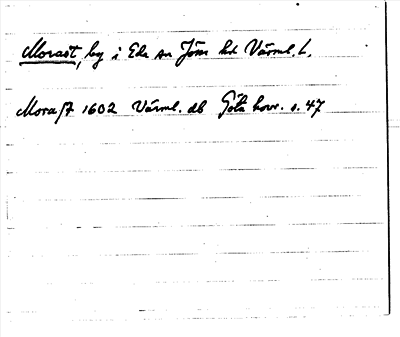 Morast, by i Eda sn Jösse hd Värml. l.
Morast 1602 Värml. db Göta hovr. s. 47